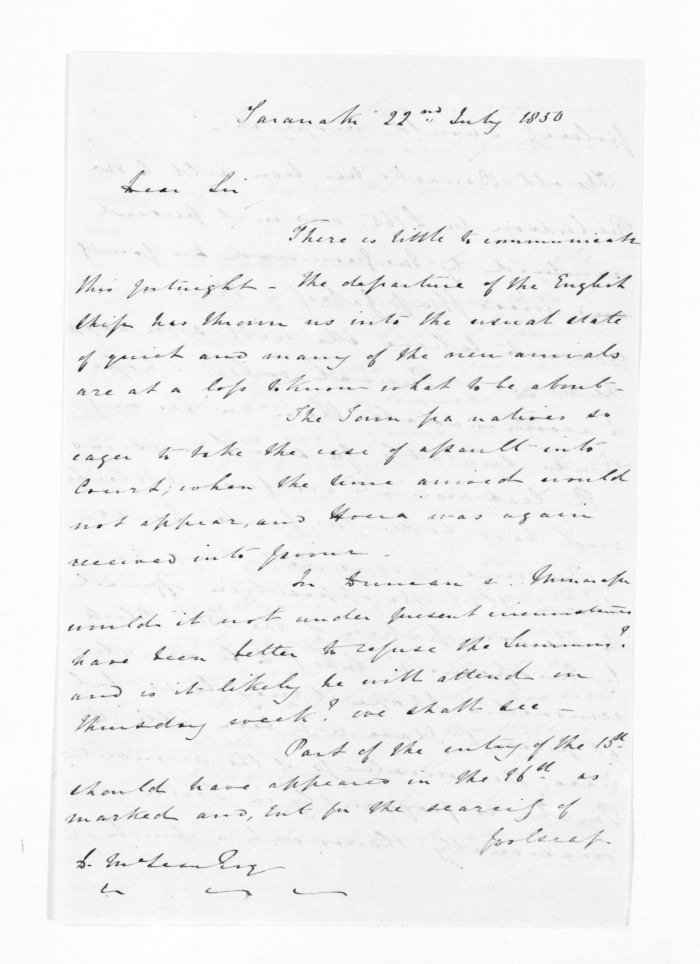 Taranaki 22nd July 1850
Dear Sir
There is little to communicate
this fortnight - the departure of the English
ship has thrown us into the usual state
of quiet and many of the new arrivals
are at a loss to know what to be about -
The Town pa natives so
eager to take the case of assault into
Court, when the time arrived would
not appear, and Hoera was again
received into favour -
In Duncan v.
would it not under present circumstances
have been better to refuse the Summons?
and is it likely he will attend on
Thursday week? we shall see -
Part of the entry of the 15th
should have appeared in the 16th as
marked and, but for the scarcity of
foolscap
D. McLean Esq